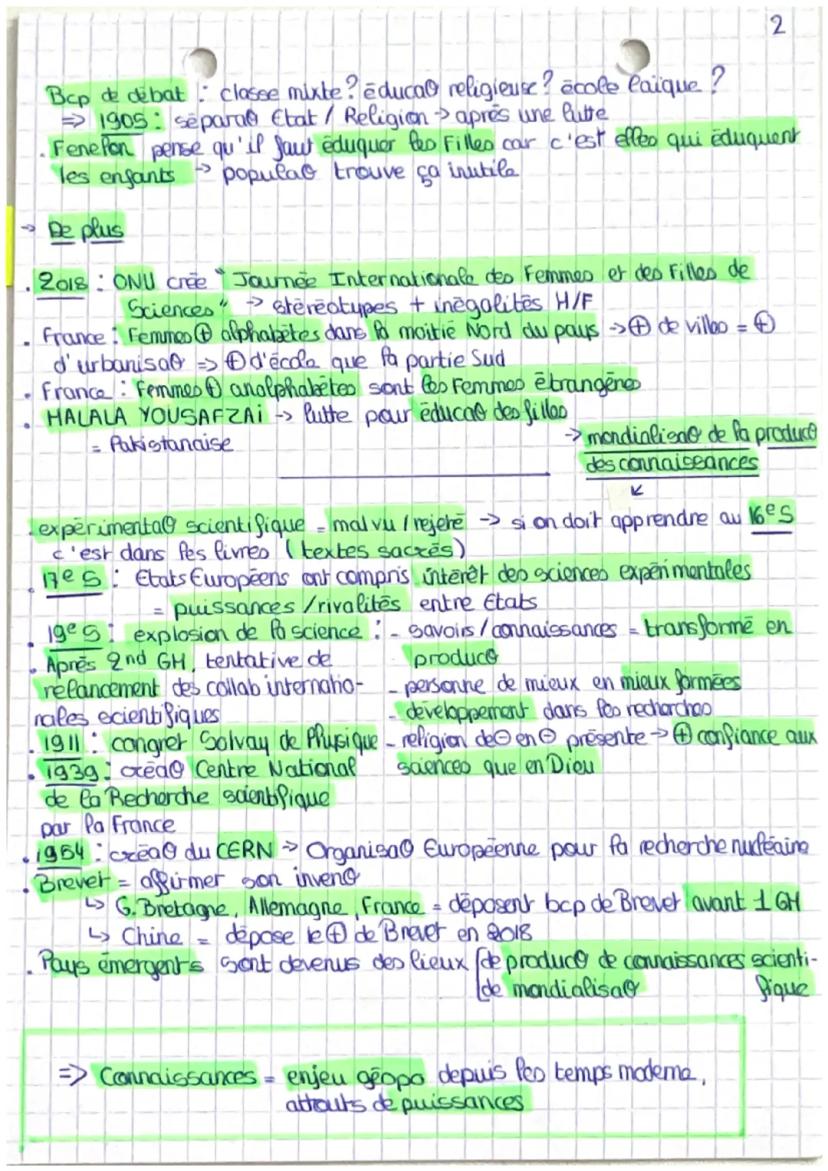 2
Bcp de débat : classe mixte ? éducaO religieuse ? école laïque ?
=> 1905 : séparaO Etat / Religion -> après une lutte
. Fenelon pense qu'il faut éduquer les Filles car c'est elles qui éduquent
les enfants -> populaO trouve ça inutile
-> De plus
. 2018 : ONU crée "Journée Internationale des Femmes et des Filles de
Sciences" -> stéréotypes + inégalités H/F
. France : Femmes ⊕ alphabètes dans la moitié Nord du pays -> ⊕ de villes = ⊕
d'urbanisaO => ⊕ d'école que la partie Sud
. France : Femmes ⊕ analphabètes sont les Femmes étrangères
. MALALA YOUSAFZAi -> lutte pour éducaO des filles
= Pakistanaise
-> mondialisaO de la producO
des connaissances
↙
. expérimentaO scientifique = mal vu / rejeté -> si on doit apprendre au 16e S
c'est dans les livres (textes sacrés)
. 17e S : Etats Européens ont compris intérêt des sciences expérimentales
= puissances / rivalités entre Etats
. 19e S : explosion de la science : - savoirs / connaissances = transformé en
producO
- personne de mieux en mieux formées
- développement dans les recherches
- religion de ⊖ en ⊖ présente -> ⊕ confiance aux
sciences que en Dieu
. Après 2nd GH, tentative de
relancement des collab internatio-
nales scientifiques
. 1911 : congret Solvay de Physique
. 1939 : créaO Centre National
de la Recherche scientifique
par la France
. 1954 : créaO du CERN -> OrganisaO Européenne pour la recherche nucléaire
. Brevet = affirmer son invenO
↳ G. Bretagne, Allemagne, France = déposent bcp de Brevet avant 1 GH
↳ Chine = dépose le ⊕ de Brevet en 2018
. Pays émergents sont devenus des lieux [de producO de connaissances scienti-
fique
[de mondialisaO
=> Connaissances = enjeu géopo depuis les temps moderne,
attouts de puissances